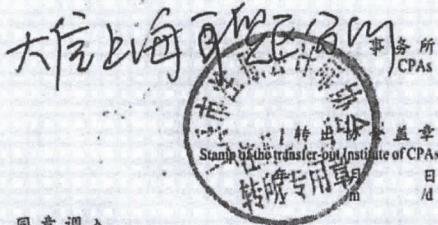 大信上海
事务所
CPAs
转出协会盖章
Stamp of the transfer-out Institute of CPAs
月 日
m /d
市注册会计师协会
转所专用章
同意调入